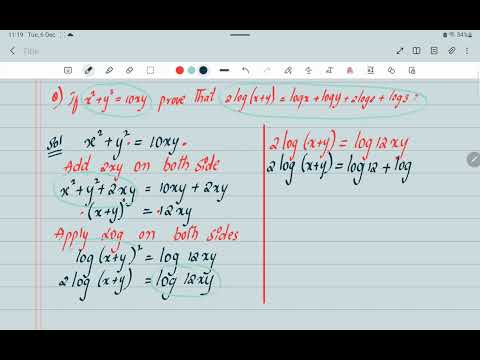 11:19 Tue, 6 Dec
54%
Title
Q) If x² + y² = 10xy prove that 2 log (x+y) = logx + logy + 2log2 + log3
Sol x² + y² = 10xy.
Add 2xy on both side
x² + y² + 2xy = 10xy + 2xy
(x+y)² = 12xy
Apply Log on both sides
log (x+y)² = log 12xy
2 log (x+y) = log 12xy
2 log (x+y) = log 12 xy
2 log (x+y) = log 12 + log